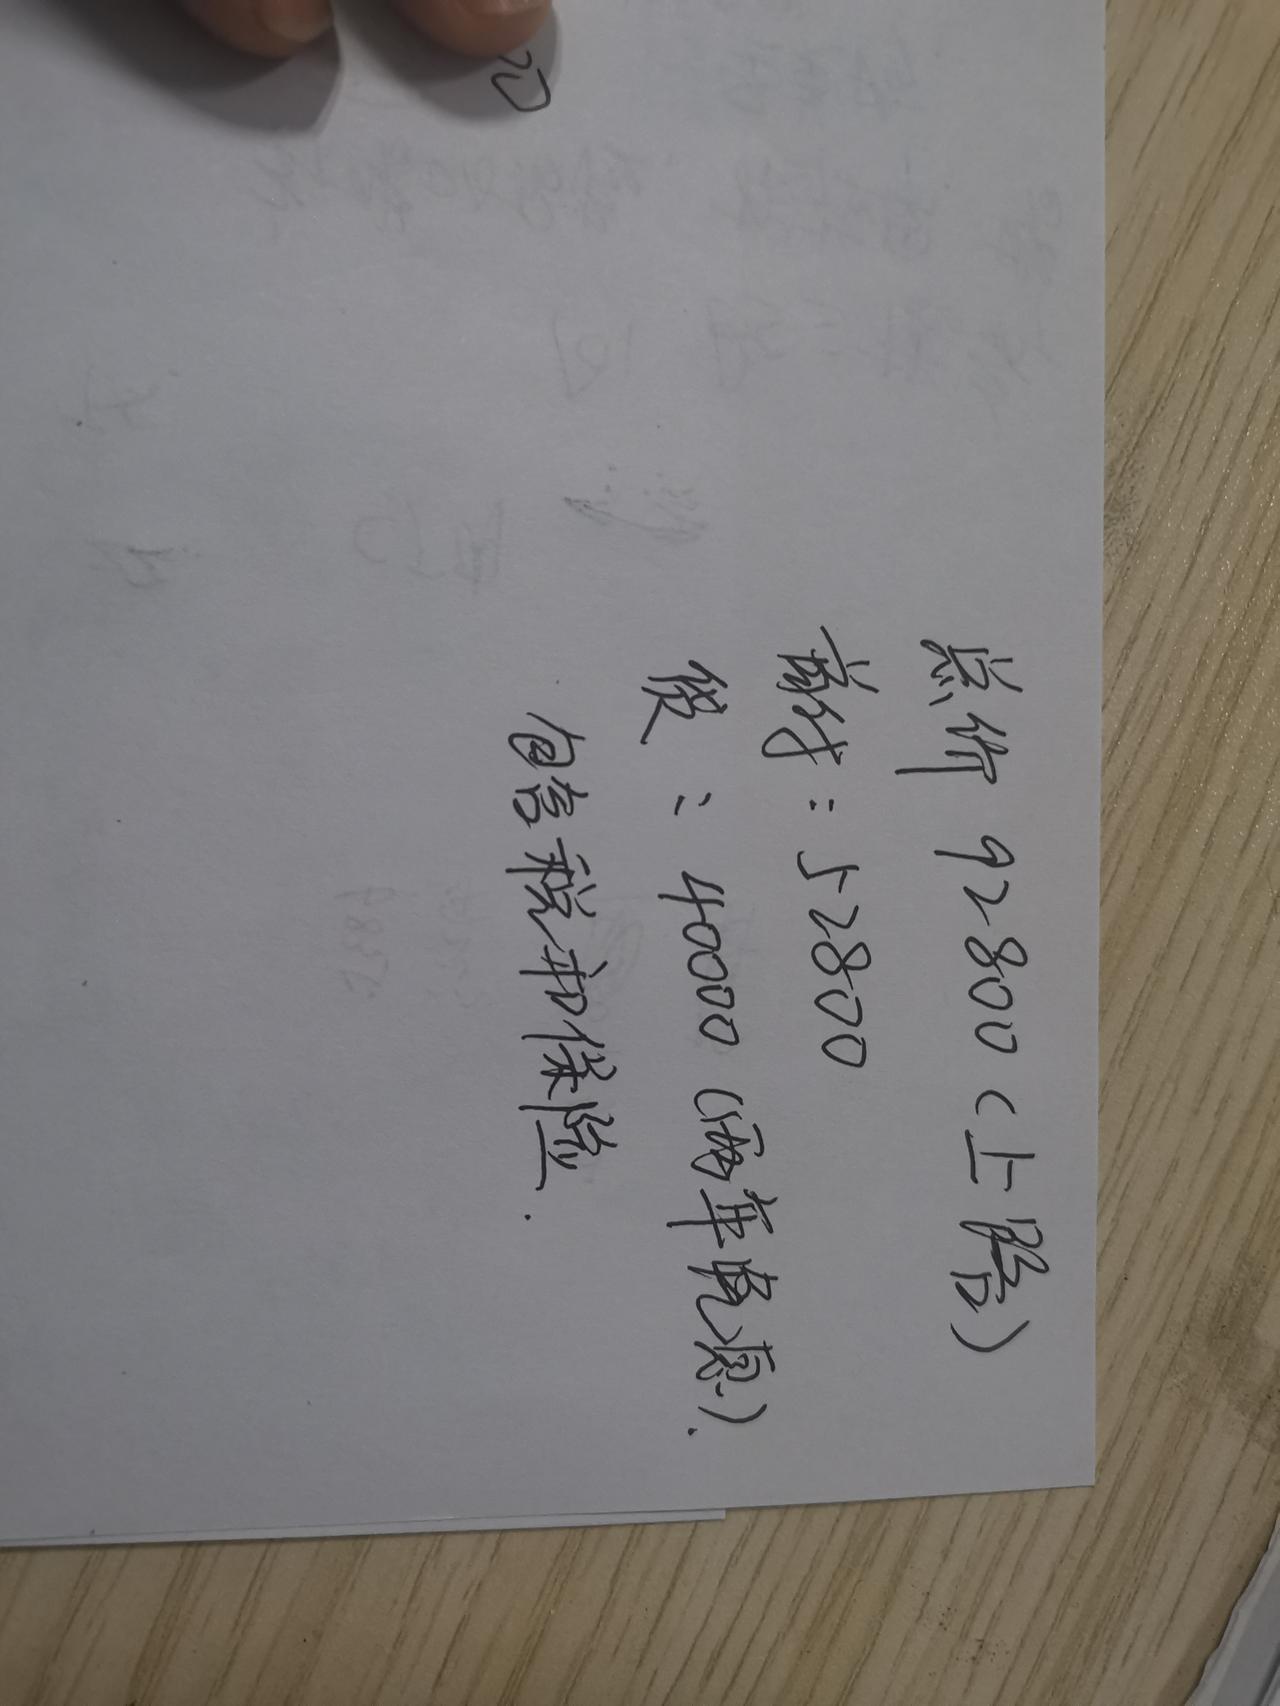 总价 92800（上路）
首付：52800
贷：40000（两年免息）.
包含税和保险.